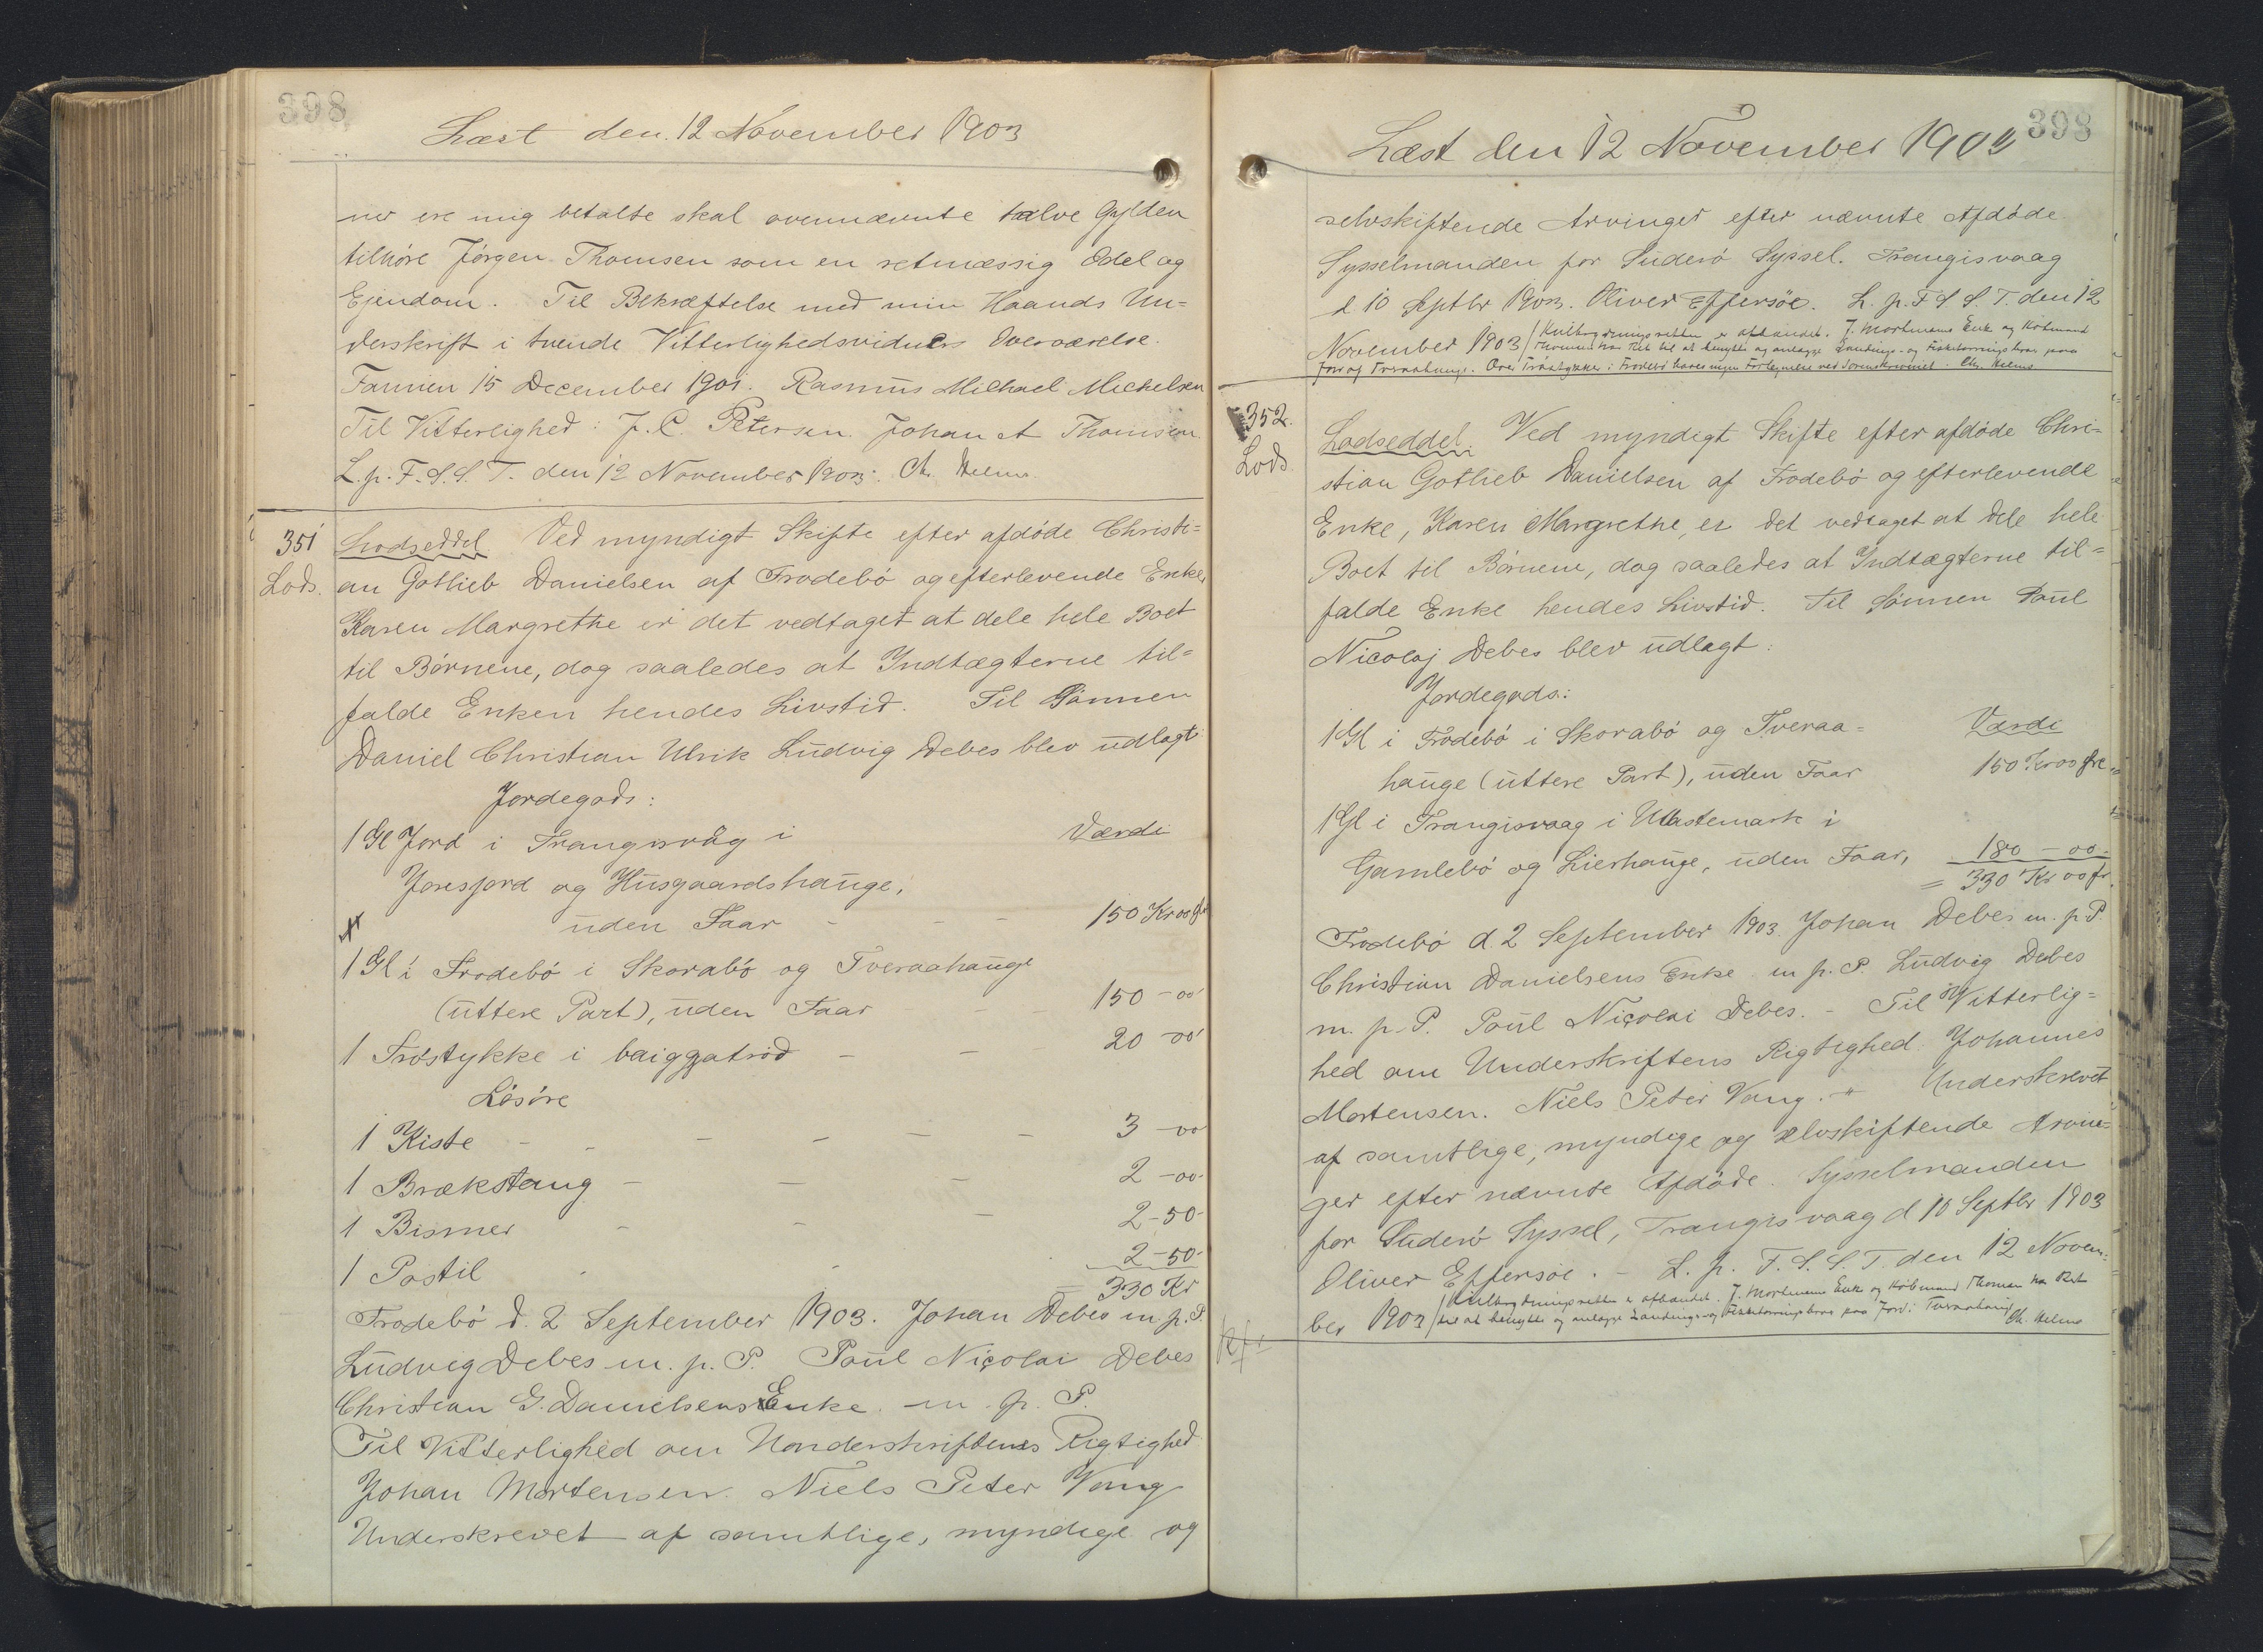 398
Læst den 12 November 1903
ner ere mig betalte skal ovennævnte halve Gylden
tilhøre Jørgen Thomsen som en retmæssig Odel og
Ejendom. Til Bekræftelse med min Haands Un=
derskrift i tvende Vitterlighedsvidners Overværelse.
Famien 15 December 1901. Rasmus Michael Michelsen
Til Vitterlighed: J. C. Petersen. Johan A Thomsen.
L. p. F. S. S. T. den 12 November 1903: Ch. Helms.
351 Lodseddel Ved myndigt Skifte efter afdøde Christi=
Lods. an Gotlieb Danielsen af Frodebø og efterlevende Enke,
Karen Margrethe er det vedtaget at dele hele Boet
til Børnene, dog saaledes at Indtægterne til=
falde Enken hendes Livstid. Til Sønnen
Daniel Christian Ulrik Ludvig Debes blev udlagt:
Jordegods:
1 Gl Jord i Trangisvåg i Værdi
Joresjord og Husgaardshauge,
uden Faar - - - 150 Kr 00 Øre
1 Gl i Frodebø i Skorabø og Tveraahauge
(uttere Part), uden Faar - - 150 - 00
1 Trøstykke i baiggatrød - - 20 - 00
Løsøre
1 Kiste - - - - - - 3 - 00
1 Brækstang - - - 2 - 00 -
1 Bismer - - - 2 - 50 -
1 Postil - - 2 - 50 -
= 330 Kr
Frodebø d. 2 September 1903. Johan Debes m. p. P.
Ludvig Debes m. p. P. Poul Nicolai Debes
Christian G. Danielsens Enke. m. p. P.
Til Vitterlighed om Underskriftens Rigtighed
Johan Mortensen. Niels Peter Vang
Underskrevet af samtlige, myndige og
398
Læst den 12 November 1903
selvskiftende Arvinger efter nævnte Afdøde.
Sysselmanden for Suderø Syssel. Trangisvaag
d 10 Septbr 1903. Oliver Effersøe. L. p. F S S. T. den 12
November 1903 / Kulbrydningsretten er afhændet. J. Mortensens Enke og Købmand
Thomsen har Ret til at benytte og anlægge Landings- og Fisketørringsplads paa
Jord i Tveraahauge. Over Trøstykker i Frodebø haves ingen Fortegnelse ved Sorenskriveriet. Ch. Helms
352. Lodseddel. Ved myndigt Skifte efter afdøde Chri=
Lods. stian Gotlieb Danielsen af Frodebø og efterlevende
Enke, Karen Margrethe, er det vedtaget at dele hele
Boet til Børnene, dog saaledes at Indtægterne til=
falde Enke hendes Livstid. Til Sønnen Poul
Nicolaj Debes blev udlagt:
Jordegods:
1 Gl i Frodebø i Skorabø og Tveraa= Værdi
hauge (uttere Part), uden Faar 150 Kr 00 Øre
1 Gl i Trangisvaag i Ullastemark i
Gamlebø og Lierhauge, uden Faar, 180 - 00 -
= 330 Kr 00 Ør.
Frodebø d. 2 September 1903. Johan Debes m. p. P.
Christian Danielsens Enke m p. P. Ludvig Debes
m. p. P. Poul Nicolai Debes. - Til Vitterlig=
hed om Underskriftens Rigtighed. Johannes
Mortensen. Niels Peter Vang. - Underskrevet
af samtlige, myndige og selvskiftende Arvin=
ger efter nævnte Afdøde. Sysselmanden
for Suderø Syssel, Trangisvaag d 10 Septbr 1903
Oliver Effersøe. - L. p. F. S. S. T. den 12 Novem=
ber 1903 / Kulbrydningsretten er afhændet. J. Mortensens Enke og Købmand Thomsen har Ret
til at benytte og anlægge Landings- og Fisketørringsplads paa Jord i Tveraahauge
Ch. Helms